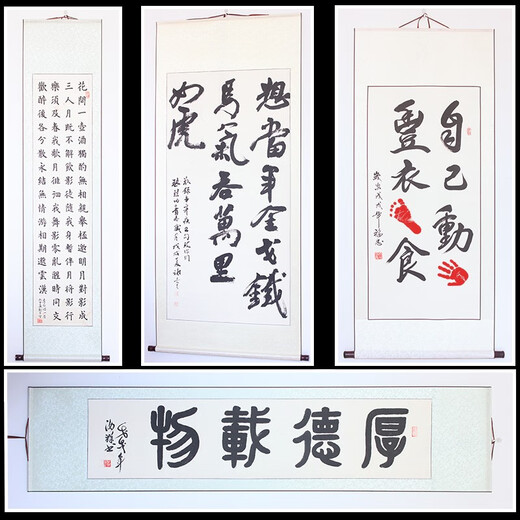 花間一壺酒獨酌無相親舉杯邀明月對影成
三人月既不解飲影徒隨我身暫伴月將影行
樂須及春我歌月徘徊我舞影零亂醒時同交
歡醉後各分散永結無情遊相期邈雲漢
想當年金戈鐵
馬氣吞萬里
如虎
自己動
豐衣食
厚德載物